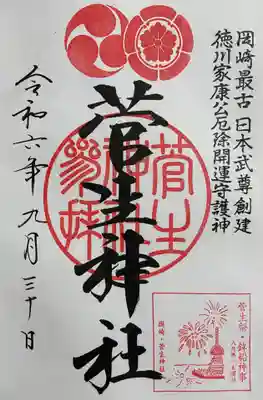 岡崎最古 日本武尊創建
徳川家康公厄除開運守護神
菅生神社
令和六年 九月 三十日
菅生祭・鉾船神事
岡崎・菅生神社